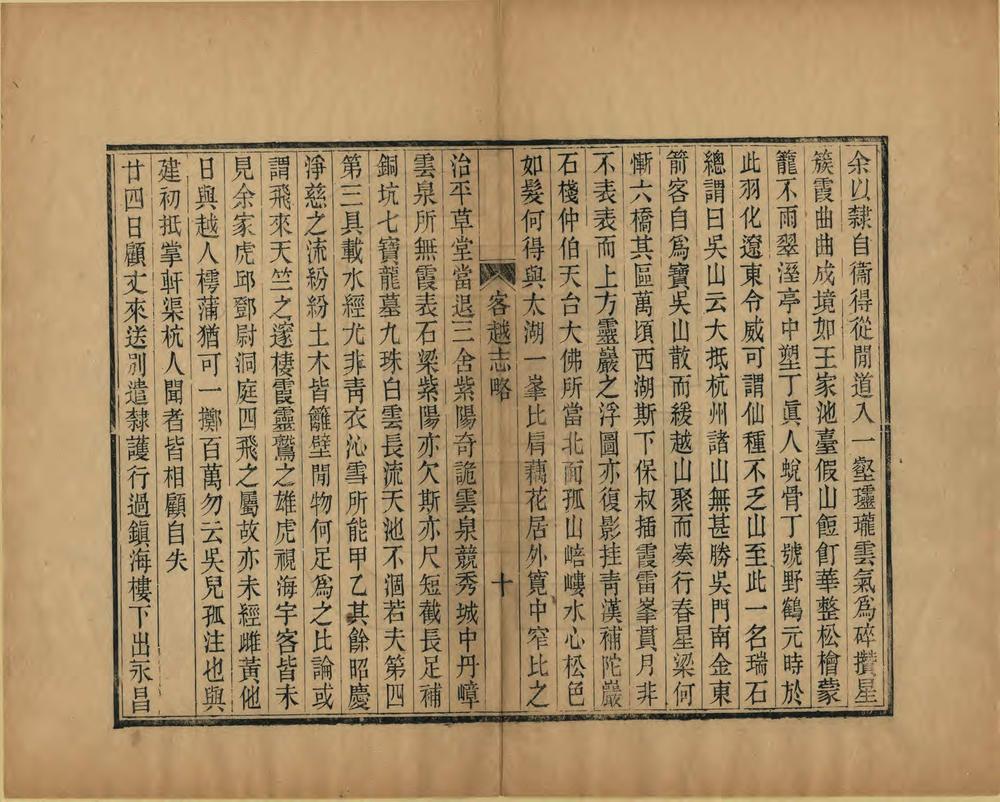 余以隸自衞得從閒道入一壑瓏瓏雲氣爲碎攢星
簇霞曲曲成境如王家池臺假山餖飣華整松檜蒙
籠不雨翠溼亭中塑丁眞人蛻骨丁號野鶴元時於
此羽化遼東令威可謂仙種不乏山至此一名瑞石
總謂曰吳山云大抵杭州諸山無甚勝吳門南金東
箭客自爲寶吳山散而緩越山聚而凑行春星梁何
慚六橋其區萬頃西湖斯下保叔插霞雷峯貫月非
不表表而上方靈巖之浮圖亦復影挂靑漢補陀巖
石棧仲伯天台大佛所當北面孤山㟝嶁水心松色
如髮何得與太湖一峯比肩藕花居外寬中窄比之
客越志略
十
治平草堂當退三舍紫陽奇詭雲泉競秀城中丹嶂
雲泉所無霞表石梁紫陽亦欠斯亦尺短截長足補
銅坑七寶龍墓九珠白雲長流天池不涸若夫第四
第三具載水經尤非靑衣沁雪所能甲乙其餘昭慶
淨慈之流紛紛土木皆籬壁閒物何足爲之比論或
謂飛來天竺之邃棲霞靈鷲之雄虎視海宇客皆未
見余家虎邱鄧尉洞庭四飛之屬故亦未經雌黃他
日與越人樗蒲猶可一擲百萬勿云吳兒孤注也與
建初抵掌軒渠杭人聞者皆相顧自失
廿四日顧丈來送別遣隸護行過鎭海樓下出永昌